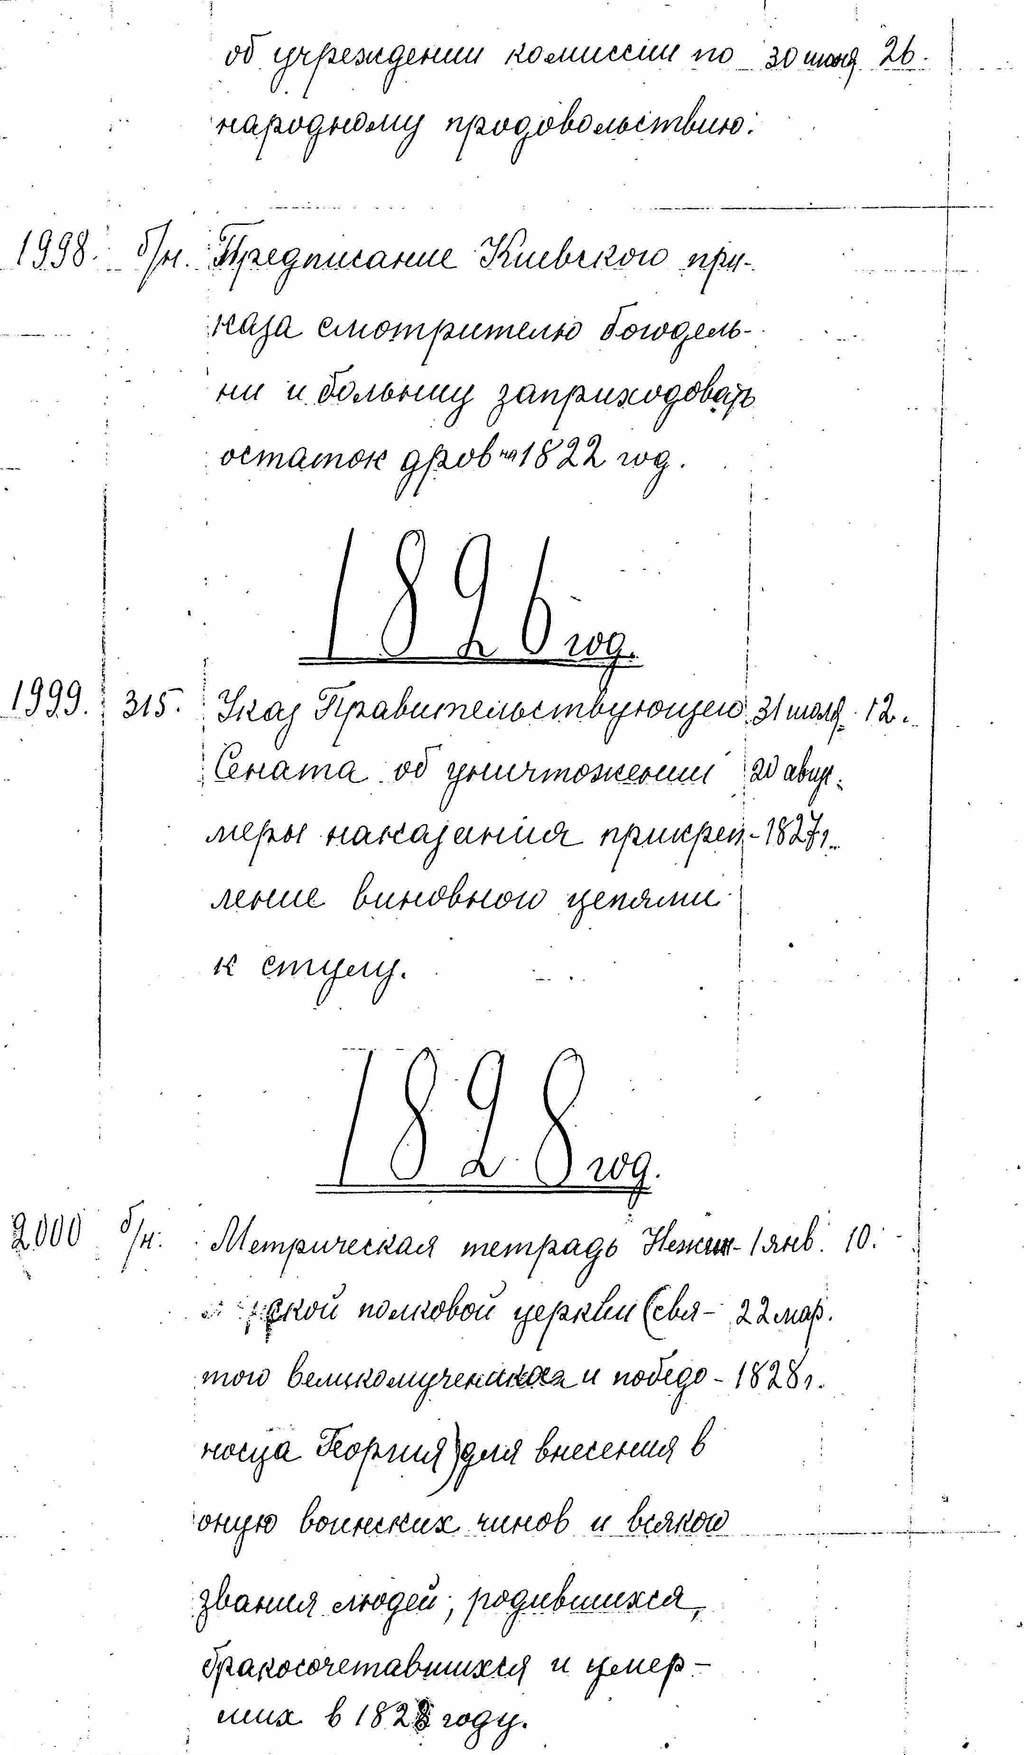 об учреждении комиссии по 30 июня 26.
народному продовольствию.
1998. б/н. Предписание Киевского при-
каза смотрителю богодель-
ни и больниц заприходовать
остаток дров на 1822 год.
1826 год.
1999. 315. Указ Правительствующего 31 июля 12.
Сената об уничтожении 20 авгус.
меры наказания прикреп- 1827г.
ление виновного цепями
к стулу.
1828 год.
2000 б/н. Метрическая тетрадь Нежин- 1 янв. 10.
ской полковой церкви (свя- 22 мар.
того великомученика и победо- 1828г.
носца Георгия) для внесения в
оную воинских чинов и всякого
звания людей, родившихся,
бракосочетавшихся и умер-
ших в 1828 году.